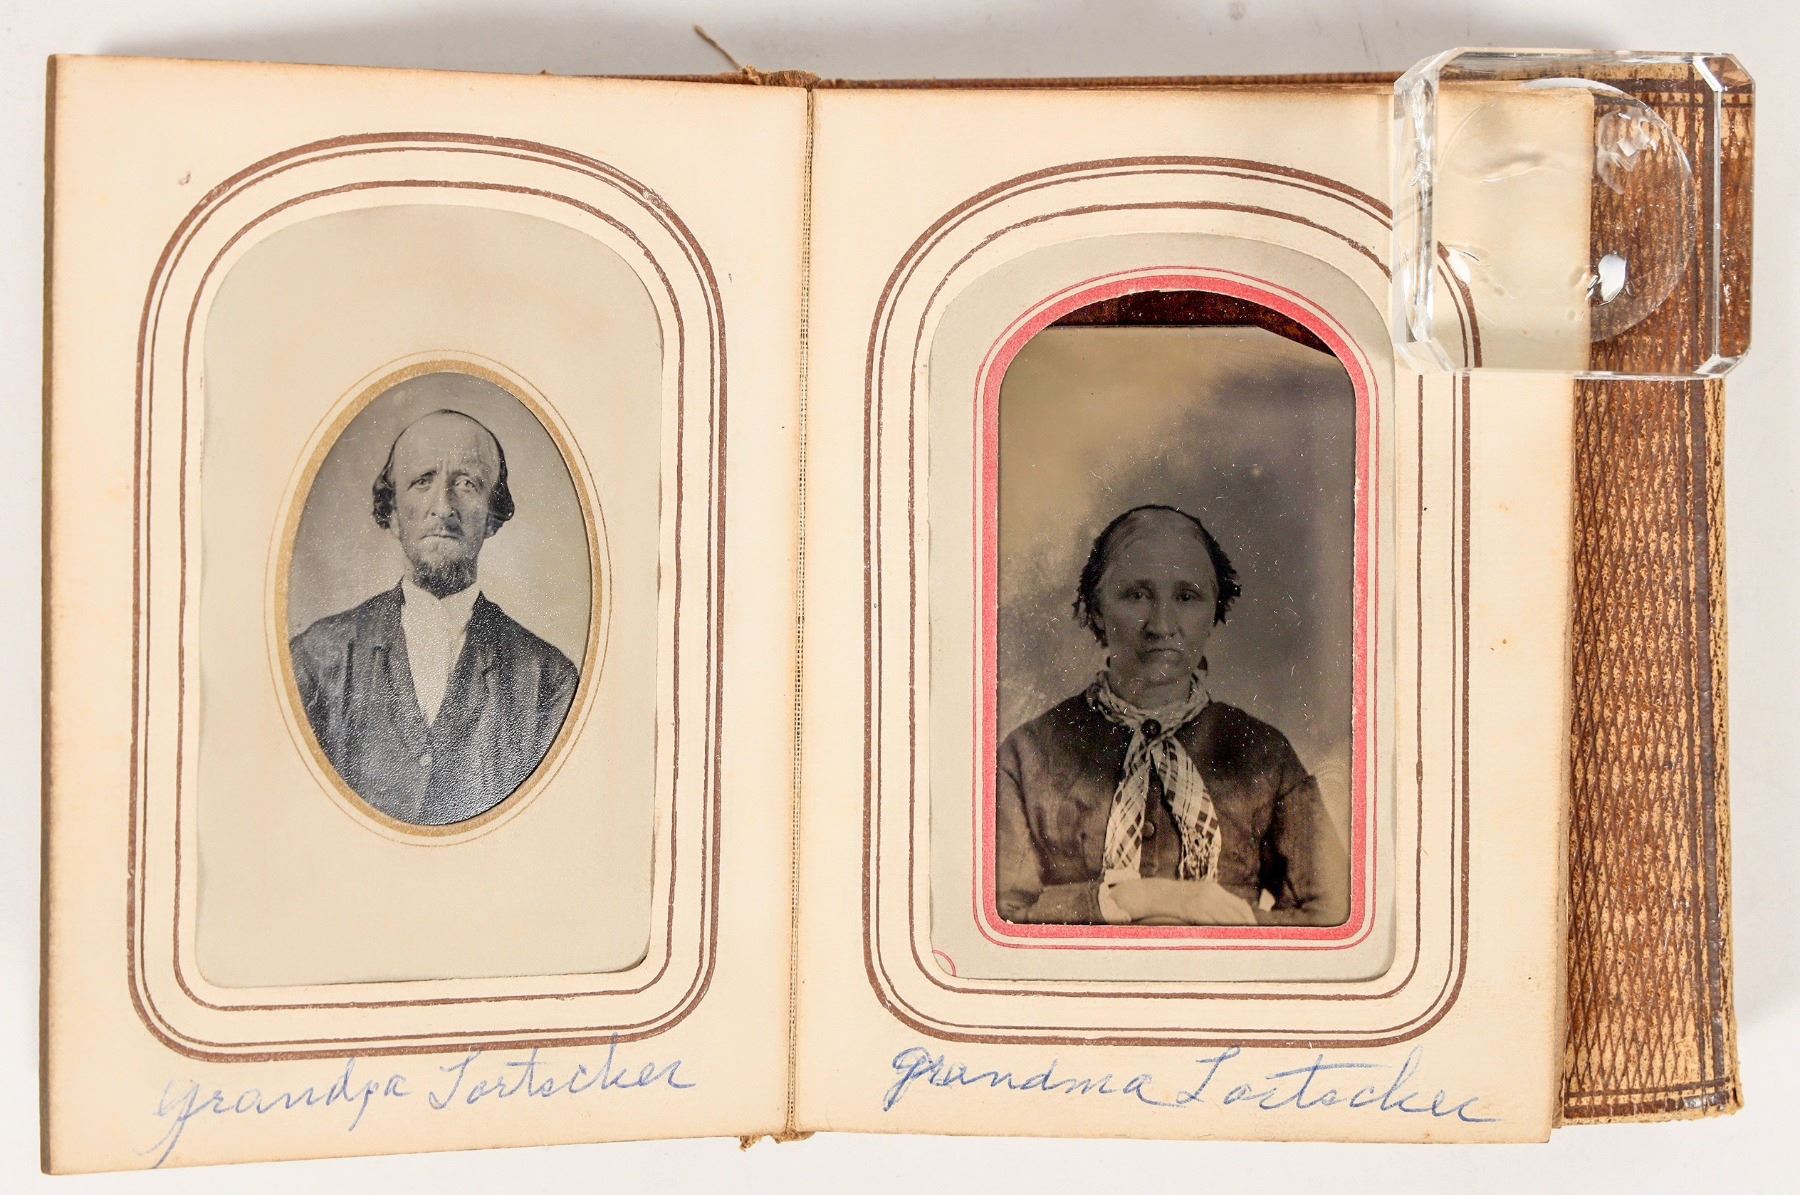 Grandpa Lortscher
Grandma Lortscher